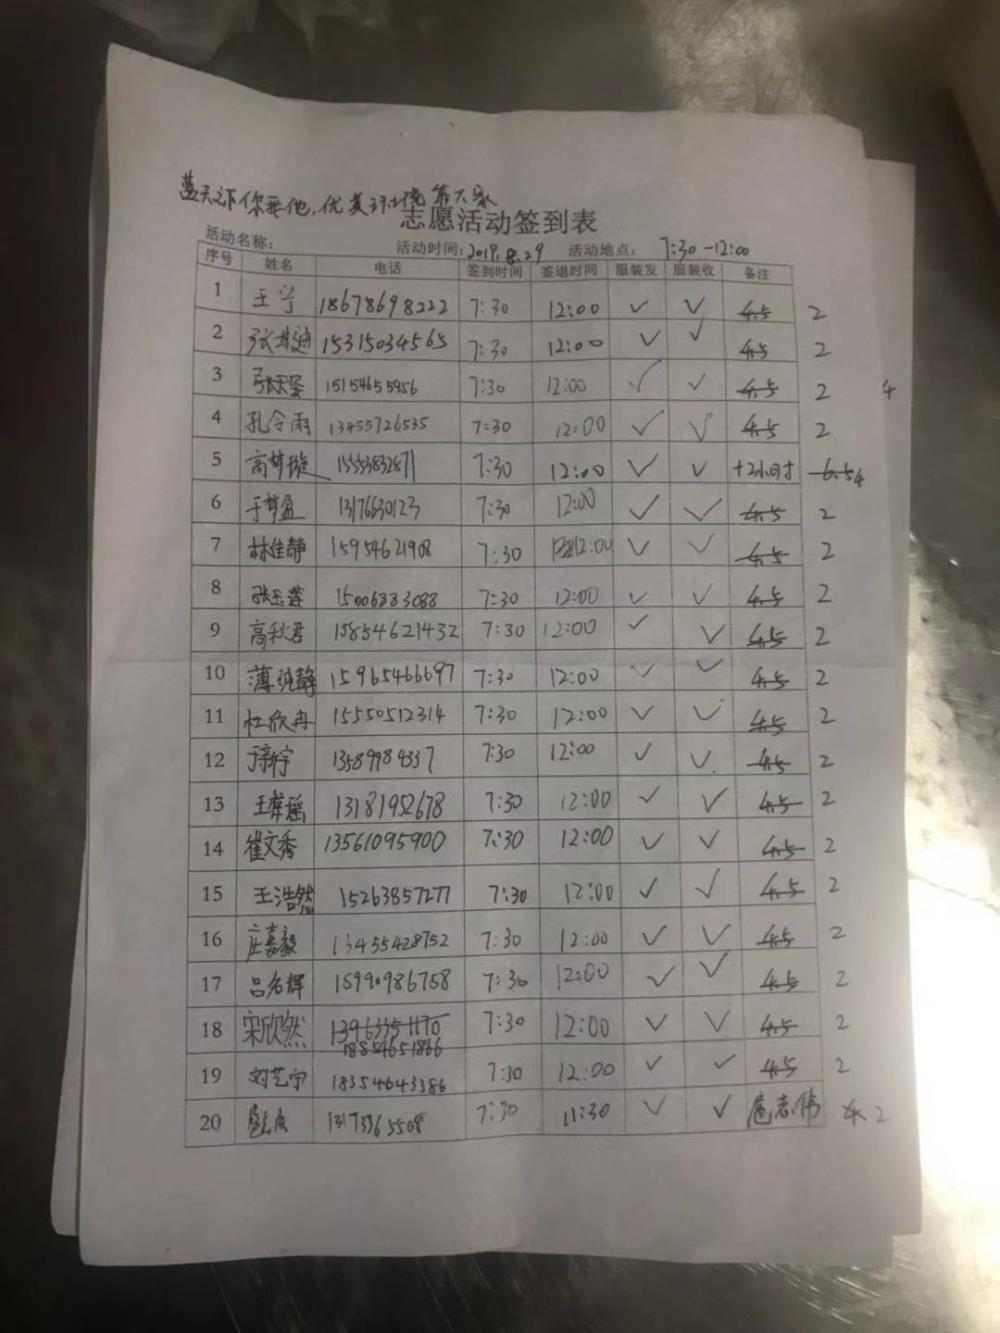 蓝天下你我他,优美环境靠大家
志愿活动签到表
活动名称: 活动时间: 2019.8.29 活动地点: 7:30-12:00
序号 姓名 电话 签到时间 签退时间 服装发 服装收 备注
1 王宁 18678698222 7:30 12:00 ✓ ✓ 4.5 2
2 15315034565 7:30 12:00 ✓ ✓ 4.5 2
3 15154655956 7:30 12:00 ✓ ✓ 4.5 2 4
4 孔令雨 13455726535 7:30 12:00 ✓ ✓ 4.5 2
5 高梦璇 15553832871 7:30 12:00 ✓ ✓ +2小时 6.5 4
6 于梦盈 13176630123 7:30 12:00 ✓ ✓ 4.5 2
7 林佳静 15954621908 7:30 12:00 ✓ ✓ 4.5 2
8 张玉莲 15006883088 7:30 12:00 ✓ ✓ 4.5 2
9 高秋君 15854621432 7:30 12:00 ✓ ✓ 4.5 2
10 15965466697 7:30 12:00 ✓ ✓ 4.5 2
11 杜欣冉 15550512314 7:30 12:00 ✓ ✓ 4.5 2
12 13589984337 7:30 12:00 ✓ ✓ 4.5 2
13 13181952678 7:30 12:00 ✓ ✓ 4.5 2
14 崔文秀 13561095900 7:30 12:00 ✓ ✓ 4.5 2
15 王浩然 15263857277 7:30 12:00 ✓ ✓ 4.5 2
16 庄嘉毅 13455428752 7:30 12:00 ✓ ✓ 4.5 2
17 吕名辉 15990986758 7:30 12:00 ✓ ✓ 4.5 2
18 宋欣然 7:30 12:00 ✓ ✓ 4.5 2
18854651866
19 刘艺宁 18354643386 7:30 12:00 ✓ ✓ 4.5 2
20 13173365508 7:30 11:30 ✓ ✓ 4. 2